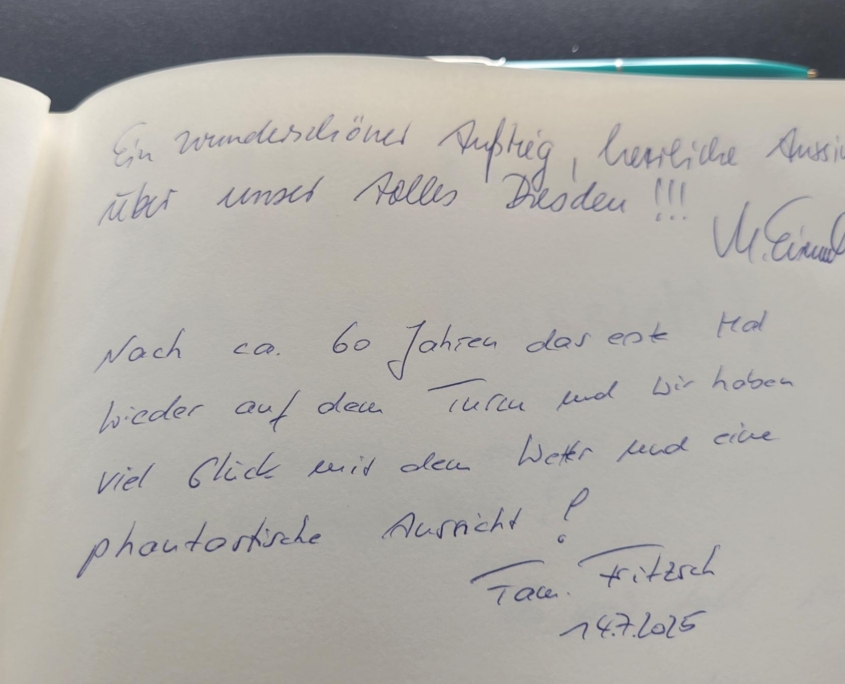 Ein wunderschöner Aufstieg, herrliche Aussi
über unser tolles Dresden !!!
Nach ca. 60 Jahren das erste Mal
wieder auf dem Turm und wir haben
viel Glück mit dem Wetter und eine
phantastische Aussicht!
Fam. Fritzsch
14.7.2025